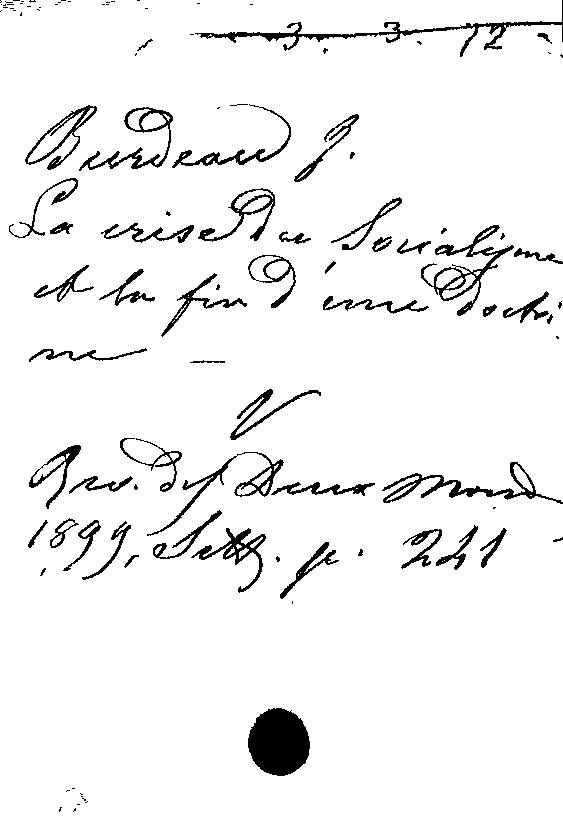 3. 3. 12
Burdeau J.
La crise du Socialisme
et la fin d'une doctri
ne —
V
Rev. des Deux Mond
1899, Sett. p. 241